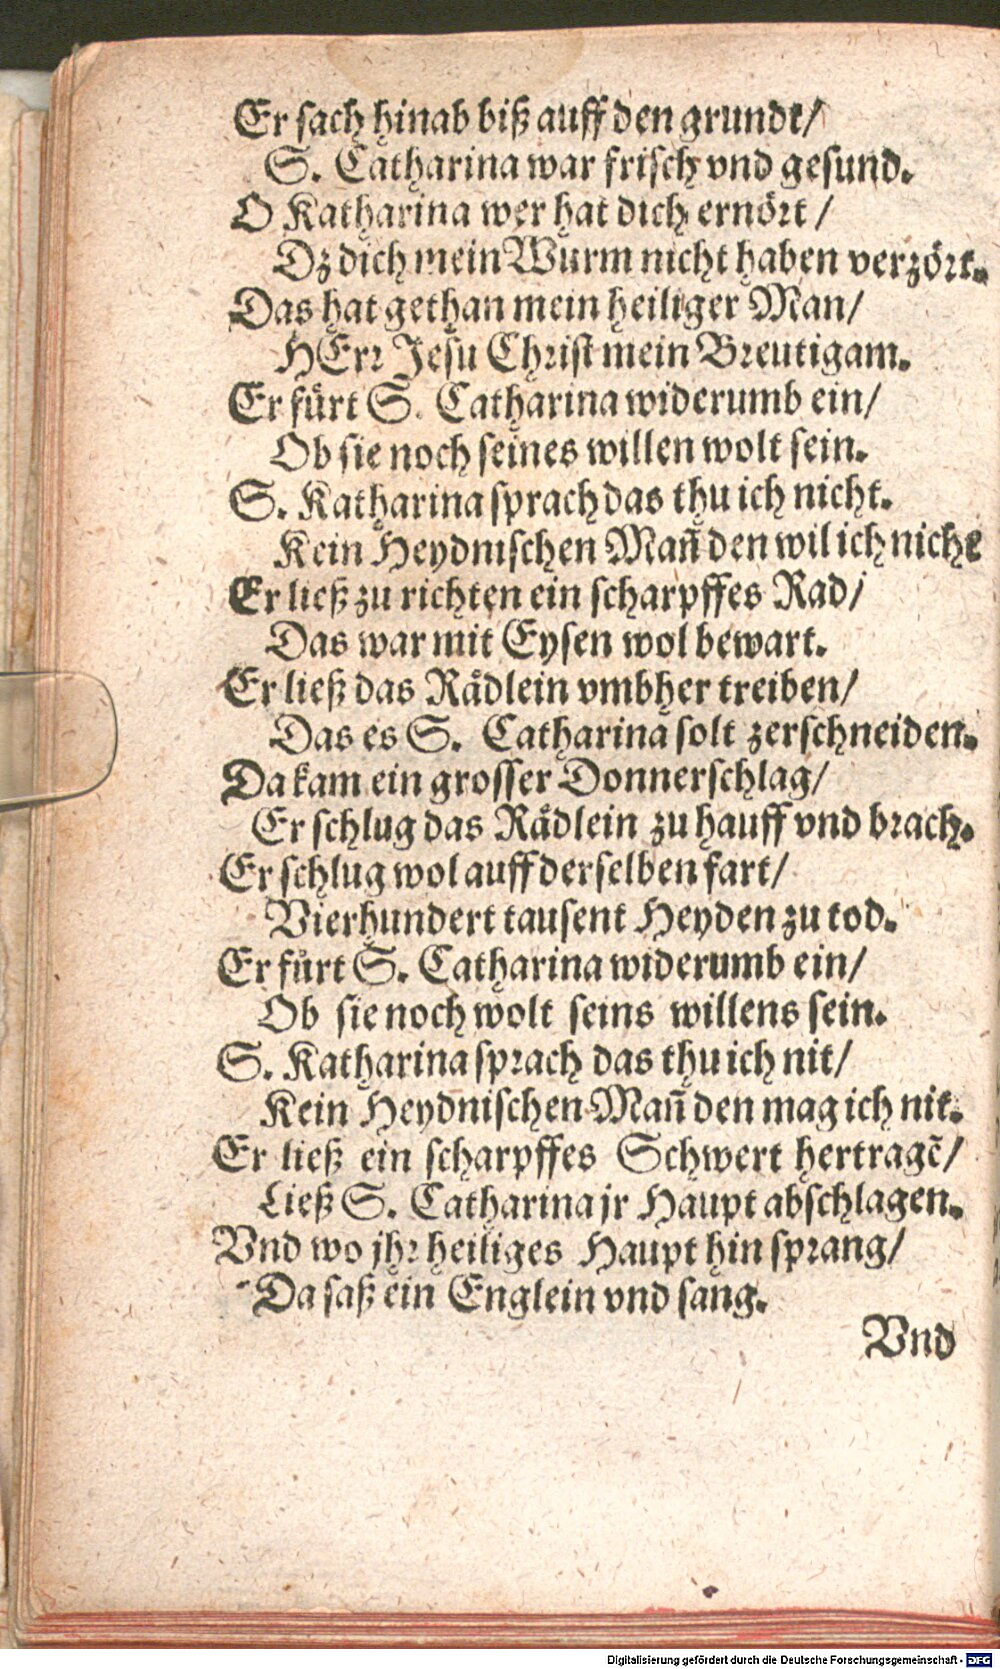 Er ſach hinab biß auff den grundt/
S. Catharina war friſch vnd geſund.
O Katharina wer hat dich ernört /
Dz dich mein Wurm nicht haben verzört.
Das hat gethan mein heiliger Man/
HErr Jeſu Chriſt mein Breutigam.
Er fuͤrt S. Catharina widerumb ein/
Ob ſie noch ſeines willen wolt ſein.
S. Katharina ſprach das thu ich nicht.
Kein Heydniſchen Man̄ den wil ich nicht
Er ließ zu richten ein ſcharpffes Rad/
Das war mit Eyſen wol bewart.
Er ließ das Raͤdlein vmbher treiben/
Das es S. Catharina ſolt zerſchneiden.
Da kam ein groſſer Donnerſchlag/
Er ſchlug das Raͤdlein zu hauff vnd brach.
Er ſchlug wol auff derſelben fart/
Vierhundert tauſent Heyden zu tod.
Er fuͤrt S. Catharina widerumb ein/
Ob ſie noch wolt ſeins willens ſein.
S. Katharina ſprach das thu ich nit/
Kein Heydniſchen Man̄ den mag ich nit.
Er ließ ein ſcharpffes Schwert hertragē/
Ließ S. Catharina jr Haupt abſchlagen.
Vnd wo jhr heiliges Haupt hin ſprang/
Da ſaß ein Englein vnd ſang.
Vnd
Digitalisierung gefördert durch die Deutsche Forschungsgemeinschaft - DFG